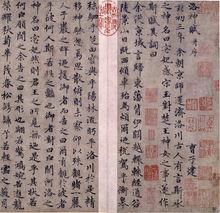 洛神賦
曹子建
黃初三年余朝京師還濟洛川古人有言斯水
之神名曰宓妃感宋玉對楚王神女之事遂作
斯賦其詞曰
余從京域言歸東藩背伊闕越轘轅經通谷陵
景山日既西傾車殆馬煩爾迺稅駕乎蘅皋秣
駟乎芝田容與乎陽林流眄乎洛川於是精
移神駭忽焉思散俯則未察仰以殊觀睹一麗
人于巖之畔迺援御者而告之曰爾有覿於彼者
乎彼何人斯若此之豔也御者對曰臣聞河洛之
神名曰宓妃則君王之所見無迺是乎其狀若
何臣願聞之余告之曰其形也翩若驚鴻婉若游龍
榮曜秋菊華茂春松髣髴兮若輕雲